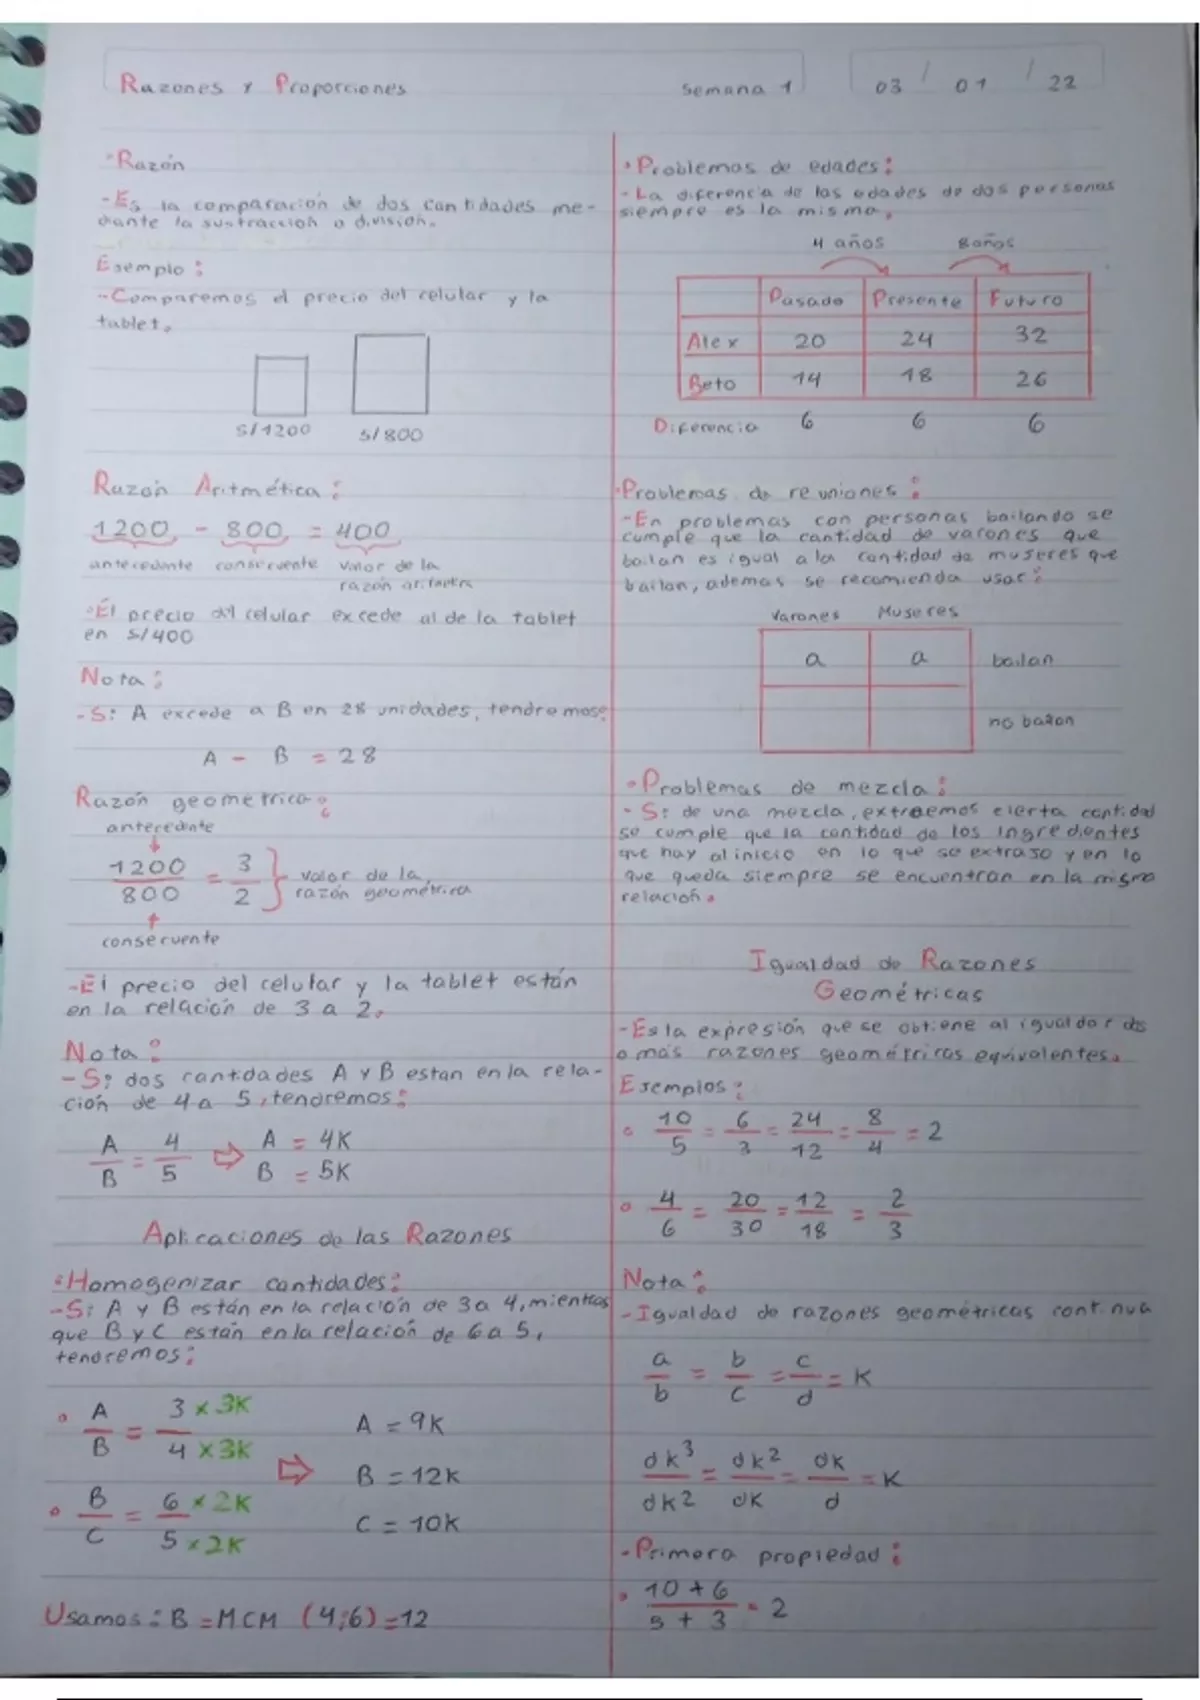 Razones y Proporciones
Semana 1
03 / 01 / 22
- Razón
- Es la comparación de dos cantidades me-
diante la sustracción o división.
Ejemplo:
- Comparemos el precio del celular y la
tablet.
S/1200
S/800
Razón Aritmética:
1200 - 800 = 400
antecedente consecuente Valor de la
razón aritmética
• El precio del celular excede al de la tablet
en S/400
Nota:
- Si A excede a B en 28 unidades, tendremos:
A - B = 28
Razón geometrica:
antecedente
1200/800 = 3/2 } valor de la
razón geométrica
consecuente
- El precio del celular y la tablet están
en la relación de 3 a 2.
Nota:
- Si dos cantidades A y B estan en la rela-
ción de 4 a 5, tendremos:
A/B = 4/5 ⇨ A = 4K
B = 5K
Aplicaciones de las Razones
• Homogenizar cantidades:
- Si A y B están en la relación de 3 a 4, mientras
que B y C están en la relación de 6 a 5,
tendremos:
• A/B = 3 x 3K / 4 x 3K ⇨ A = 9K
B = 12K
• B/C = 6 x 2K / 5 x 2K
C = 10K
Usamos: B = MCM (4;6) = 12
• Problemas de edades:
- La diferencia de las edades de dos personas
siempre es la misma.
4 años 8 años
Pasado Presente Futuro
Alex 20 24 32
Beto 14 18 26
Diferencia 6 6 6
• Problemas de reuniones:
- En problemas con personas bailando se
cumple que la cantidad de varones que
bailan es igual a la cantidad de mujeres que
bailan, ademas se recomienda usar:
Varones Mujeres
a a bailan
no bailan
• Problemas de mezcla:
- Si de una mezcla, extraemos cierta cantidad
se cumple que la cantidad de los ingredientes
que hay al inicio en lo que se extrajo y en lo
que queda siempre se encuentran en la misma
relación.
Igualdad de Razones
Geométricas
- Es la expresión que se obtiene al igualdar dos
o más razones geométricas equivalentes.
Ejemplos:
• 10/5 = 6/3 = 24/12 = 8/4 = 2
• 4/6 = 20/30 = 12/18 = 2/3
Nota:
- Igualdad de razones geométricas continua
a/b = b/c = c/d = K
dk³/dk² = dk²/dk = dk/d = K
- Primera propiedad:
• 10 + 6 / 5 + 3 = 2